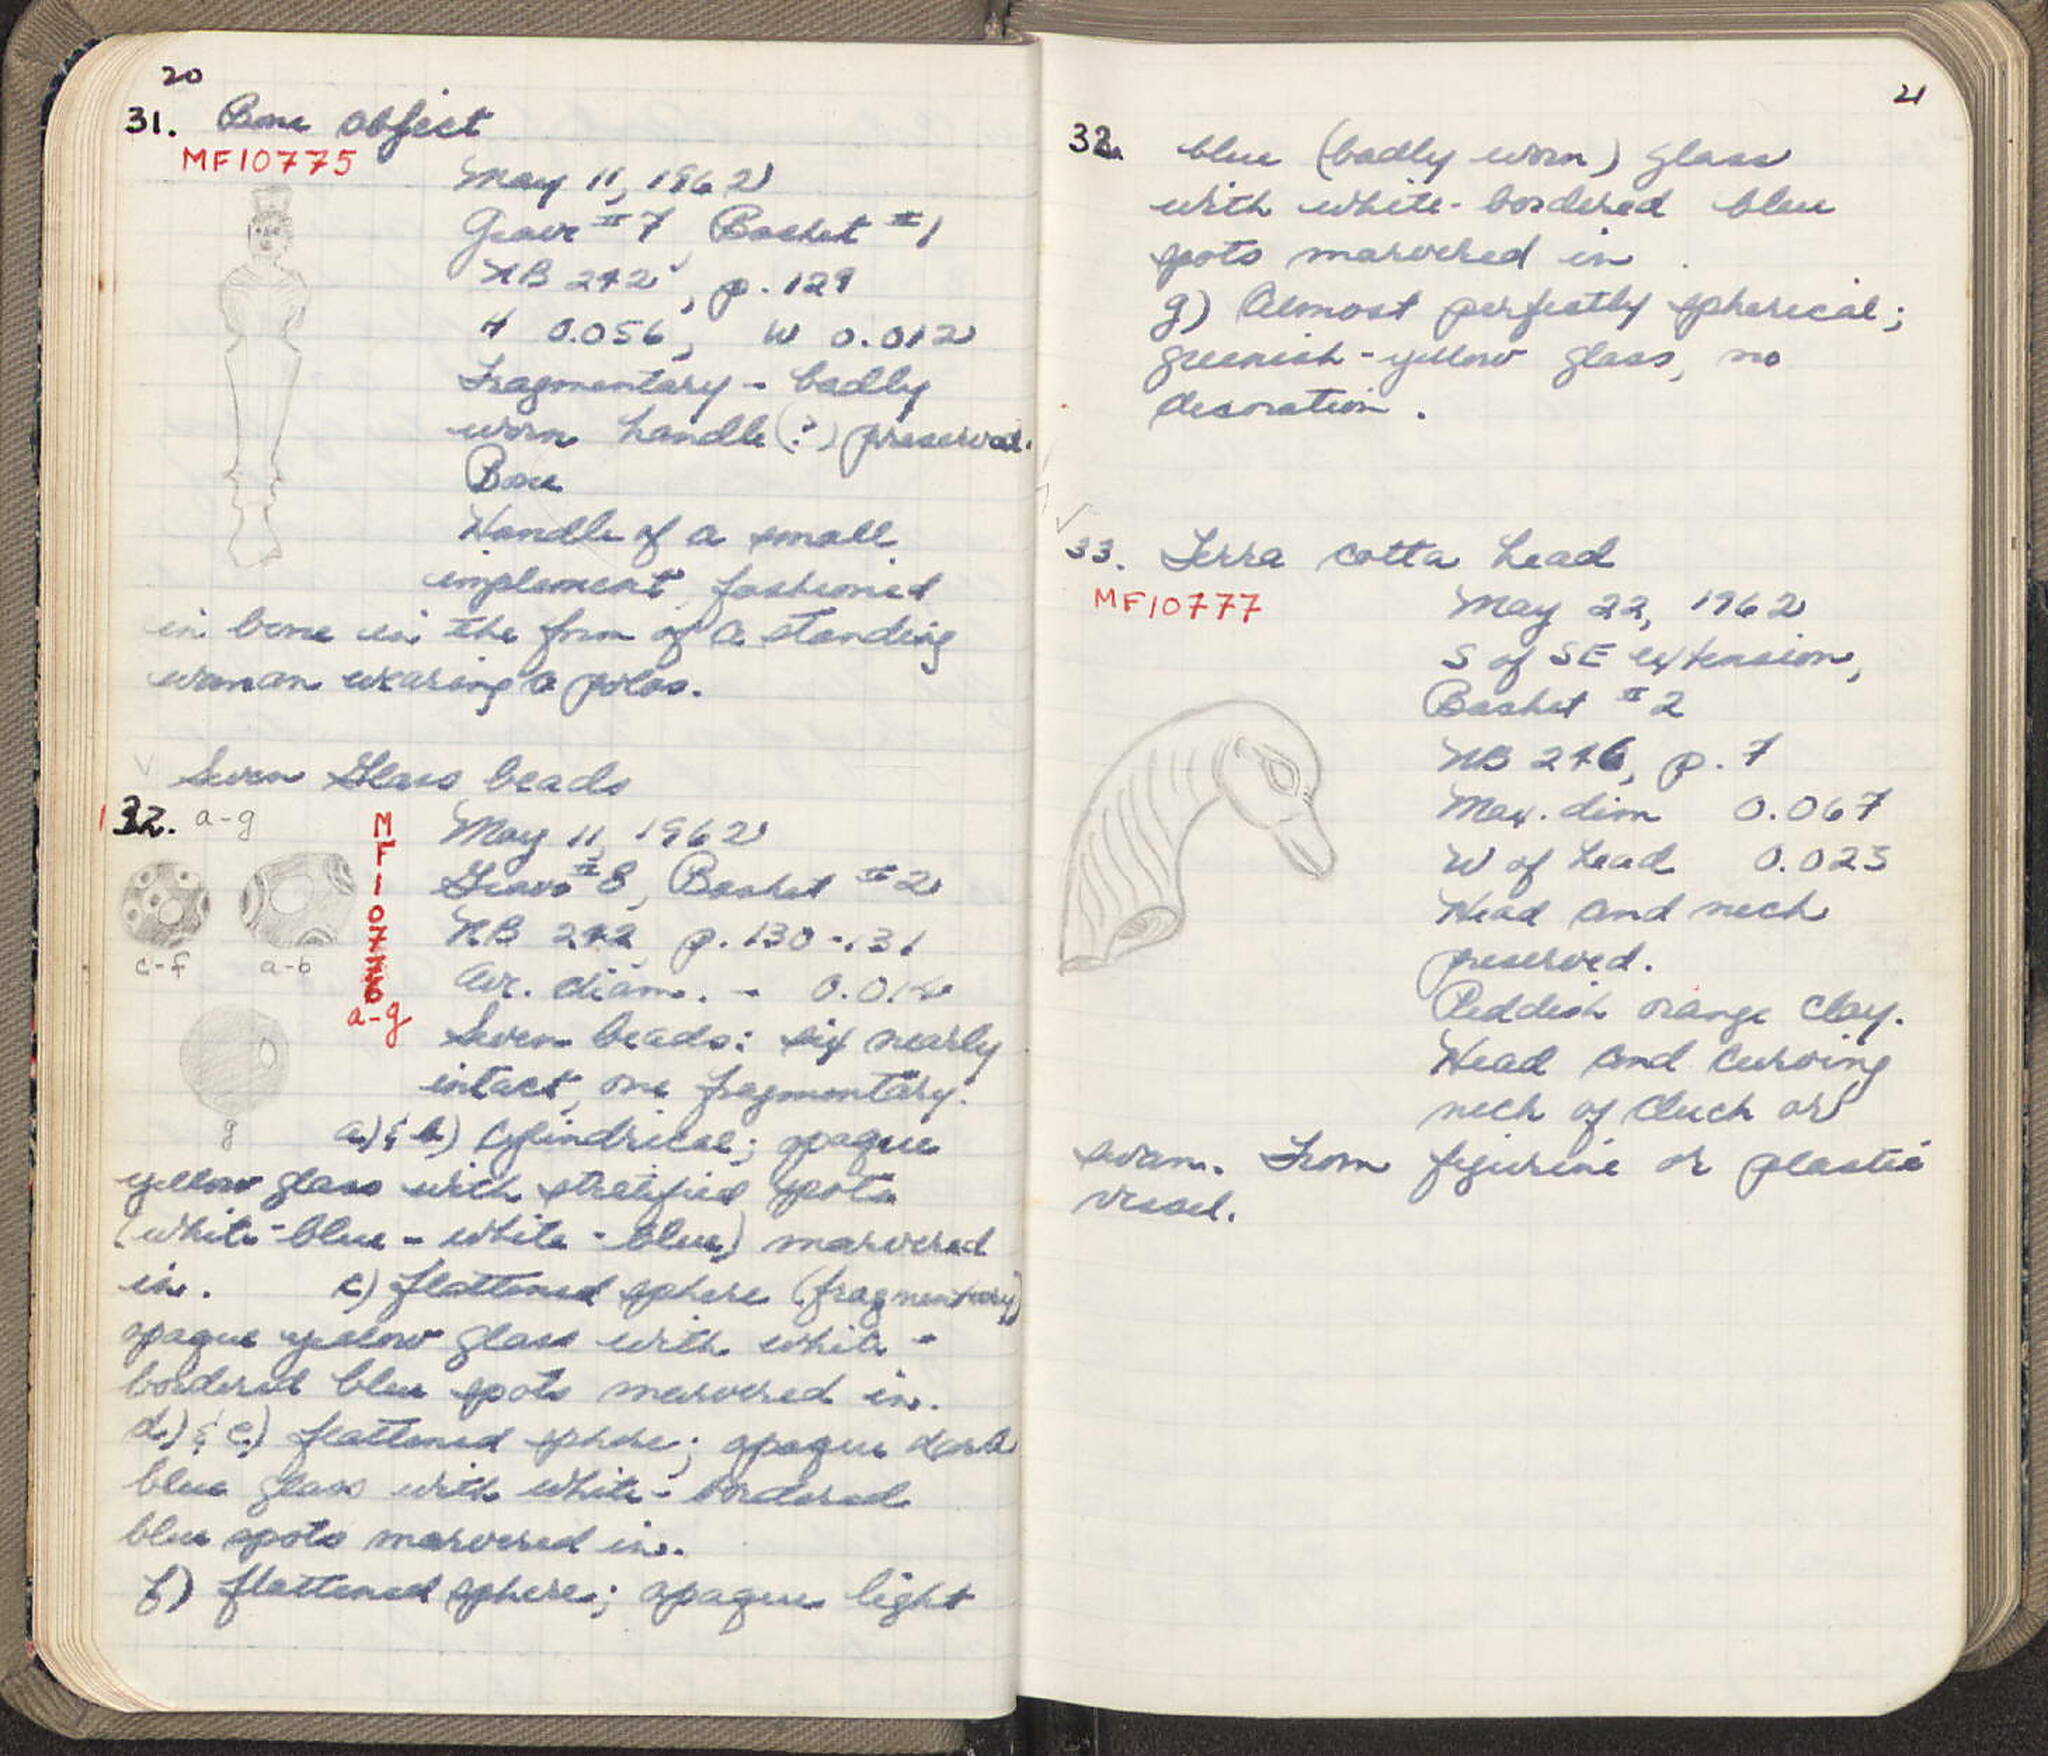 20
31. Bone object
MF10775
May 11, 1962
Grave #7, Basket #1
NB 242, p. 129
H 0.056, W 0.012
Fragmentary - badly
worn handle (?) preserved.
Bone
Handle of a small
implement, fashioned
in bone in the form of a standing
woman wearing a polos.
Seven Glass beads
32. a-g
MF10776
a-g
May 11, 1962
Grave #8, Basket #2
NB 242 p. 130-131
Av. diam. - 0.014
c-f a-b
Seven beads: six nearly
intact, one fragmentary.
g
a) & b) Cylindrical; opaque
yellow glass with stratified spots
(white-blue-white-blue) marvered
in. c) flattened sphere (fragmentary)
opaque yellow glass with white-
bordered blue spots marvered in.
d.) & e.) flattened sphere; opaque dark
blue glass with white-bordered
blue spots marvered in.
f) flattened sphere; opaque light
21
32. blue (badly worn) glass
with white-bordered blue
spots marvered in.
g) Almost perfectly spherical;
greenish-yellow glass, no
decoration.
33. Terra cotta head
MF10777
May 22, 1962
S of SE extension,
Basket #2
NB 246, p. 7
Max. dim 0.067
W of head 0.023
Head and neck
preserved.
Reddish orange clay.
Head and curving
neck of duck or
swan. From figurine or plastic
vessel.